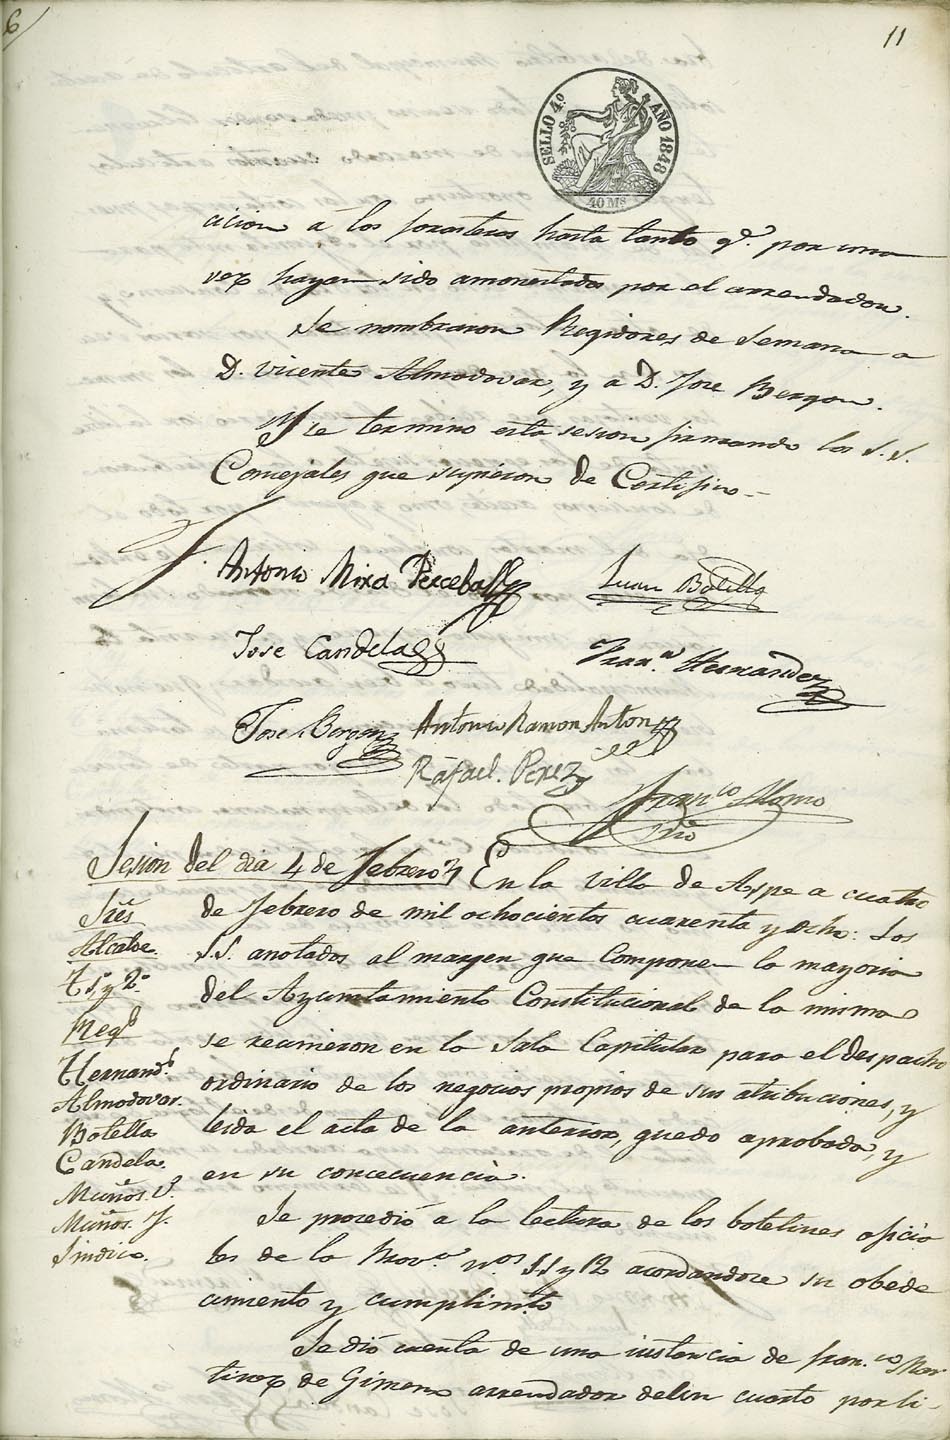 6
11
SELLO 4.º AÑO 1848
40 Ms
cicion á los forasteros hasta tanto q.e por una
vez hayan sido amonestados por el arrendador.
Se nombraron Regidores de Semana a
D. Vicente Almodovar, y a D. Jose Bergon.
Y se termino esta sesion firmando los S.S.
Concejales que supieron de Certifico
Antonio Mira Perceball
Juan Botella
Jose Candela
Fran.co Hernandez
Jose Bergon
Antonio Ramon Anton
Rafael Perez
Fran.co Alamo
Srio
Sesion del dia 4 de Febrero
En la Villa de Aspe a cuatro
de Febrero de mil ochocientos cuarenta y ocho: Los
S.S. anotados al margen que componen la mayoria
del Ayuntamiento Constitucional de la misma
se reunieron en la Sala Capitular para el despacho
ordinario de los negocios propios de sus atribuciones, y
leida el acta de la anterior, quedo aprobada, y
en su concecuencia.
Sres
Alcalde
T 1.º y 2.º
Reg.s
Hernand.s
Almodovar.
Botella
Candela.
Muños. V.
Muños. J.
Sindico.
Se procedió á la lectura de los boletines oficia
les de la Prov.a n.os 11 y 12 acordandose su obede
cimiento y cumplim.to
Se dió cuenta de una instancia de Fran.co Mar
tinez de Gimeno arrendador del un cuarto por li-